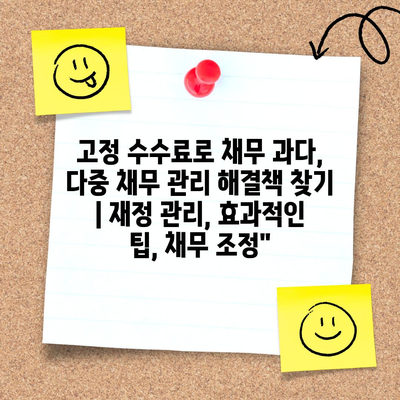 고정 수수료로 채무 과다,
다중 채무 관리 해결책 찾기
| 재정 관리, 효과적인
팁, 채무 조정"